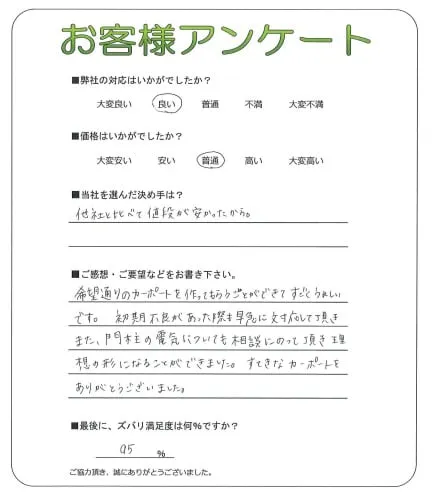 お客様アンケート
■弊社の対応はいかがでしたか？
大変良い 良い 普通 不満 大変不満
■価格はいかがでしたか？
大変安い 安い 普通 高い 大変高い
■当社を選んだ決め手は？
他社と比べて値段が安かったから。
■ご感想・ご要望などをお書き下さい。
希望通りのカーポートを作ってもらうことができて すごくうれしい
です。 初期不良があった際も早急に対応して頂き
また、門柱の電気についても相談にのって頂き 理
想の形になることができました。すてきなカーポートを
ありがとうございました。
■最後に、ズバリ満足度は何％ですか？
95 %
ご協力頂き、誠にありがとうございました。